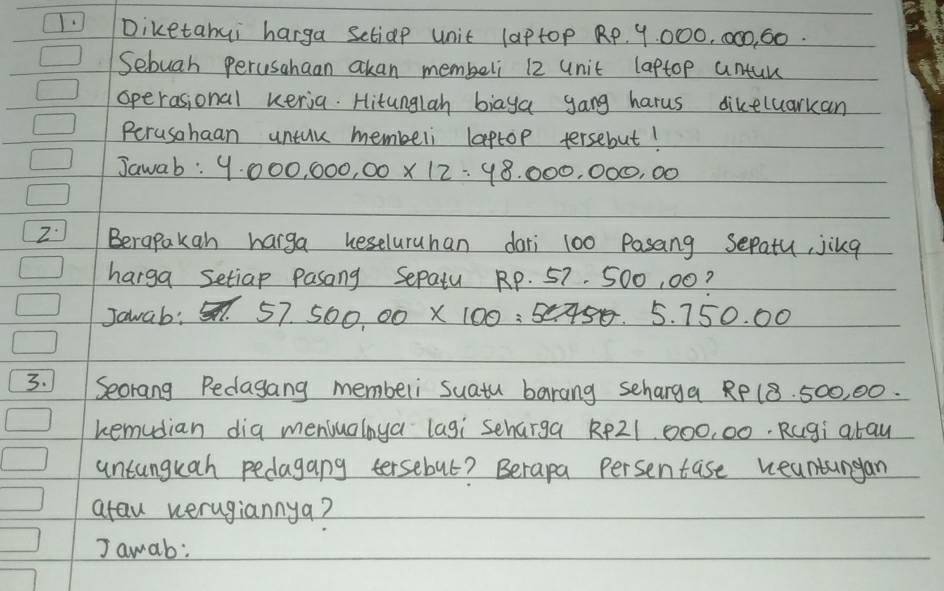 1. Diketahui harga setiap unit laptop Rp. 4.000.000,00.
Sebuah Perusahaan akan membeli 12 unit laptop untuk
operasional kerja. Hitunglah biaya yang harus dikeluarkan
Perusahaan untuk membeli laptop tersebut!
Jawab: 4.000.000,00 x 12 = 48.000.000,00
2. Berapakah harga keseluruhan dari 100 Pasang Sepatu, jika
harga setiap Pasang Sepatu RP. 57.500,00?
Jawab: 57.500,00 x 100 = 5.750.00
3. Seorang Pedagang membeli suatu barang seharga RP18.500,00.
kemudian dia menjualnya lagi seharga RP21.000,00. Rugi atau
untungkah pedagang tersebut? Berapa Persentase keuntungan
atau kerugiannya?
Jawab: